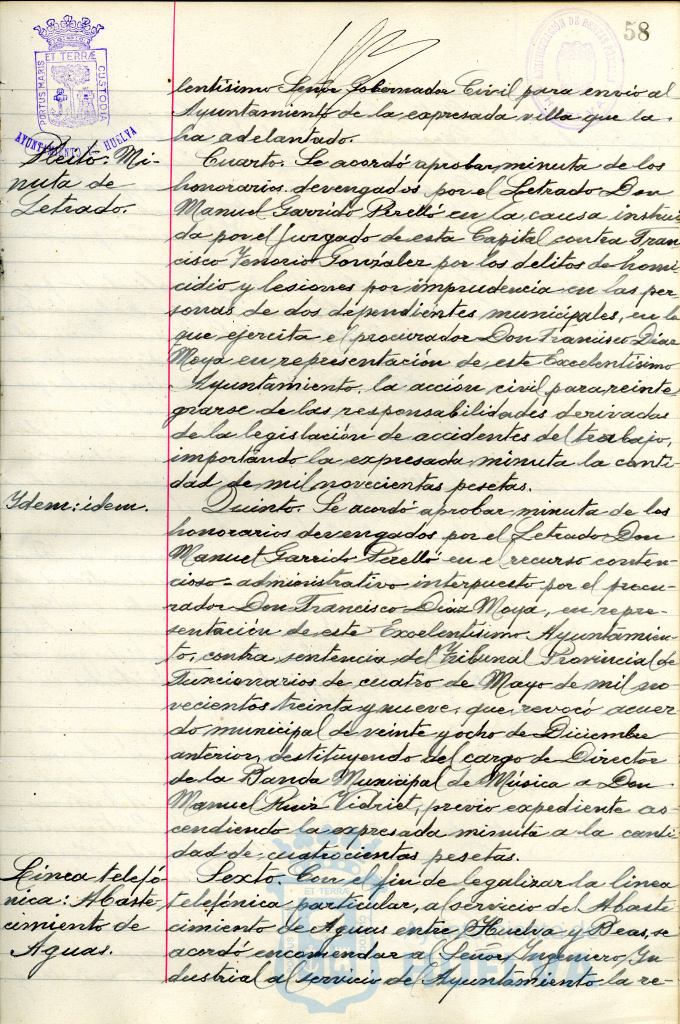 58
PORTUS MARIS ET TERRÆ CUSTODIA
AYUNTAMIENTO - HUELVA
lentísimo Señor Gobernador Civil para envio al
Ayuntamiento de la expresada villa que la
ha adelantado.
Pleito: Mi-
nuta de
Letrado.
Cuarto. Se acordó aprobar minuta de los
honorarios devengados por el Letrado Don
Manuel Garrido Perelló en la causa instrui-
da por el Juzgado de esta Capital contra Fran
cisco Tenorio González por los delitos de homi
cidio y lesiones por imprudencia en las per-
sonas de dos dependientes municipales, en la
que ejercita el procurador Don Francisco Díaz
Moya en representación de este Excelentísimo
Ayuntamiento, la acción civil para reinte-
grarse de las responsabilidades derivadas
de la legislación de accidentes del trabajo,
importando la expresada minuta la canti-
dad de mil novecientas pesetas.
Ydem: idem.
Quinto. Se acordó aprobar minuta de los
honorarios devengados por el Letrado Don
Manuel Garrido Perelló en el recurso conten-
cioso-administrativo interpuesto por el procu-
rador Don Francisco Díaz Moya, en repre-
sentación de este Excelentísimo Ayuntamien-
to, contra sentencia del Tribunal Provincial de
Funcionarios de cuatro de Mayo de mil no
vecientos treinta y nueve, que revocó acuer
do municipal de veinte y ocho de Diciembre
anterior, destituyendo del cargo de Director
de la Banda Municipal de Música a Don
Manuel Ruiz Vidriet, previo expediente as-
cendiendo la expresada minuta a la canti
dad de cuatrocientas pesetas.
Línea telefó-
nica: Abaste
cimiento de
Aguas.
Sexto. Con el fin de legalizar la línea
telefónica particular, al servicio del Abaste
cimiento de Aguas entre Huelva y Beas, se
acordó encomendar al Señor Ingeniero In
dustrial al servicio del Ayuntamiento la re-